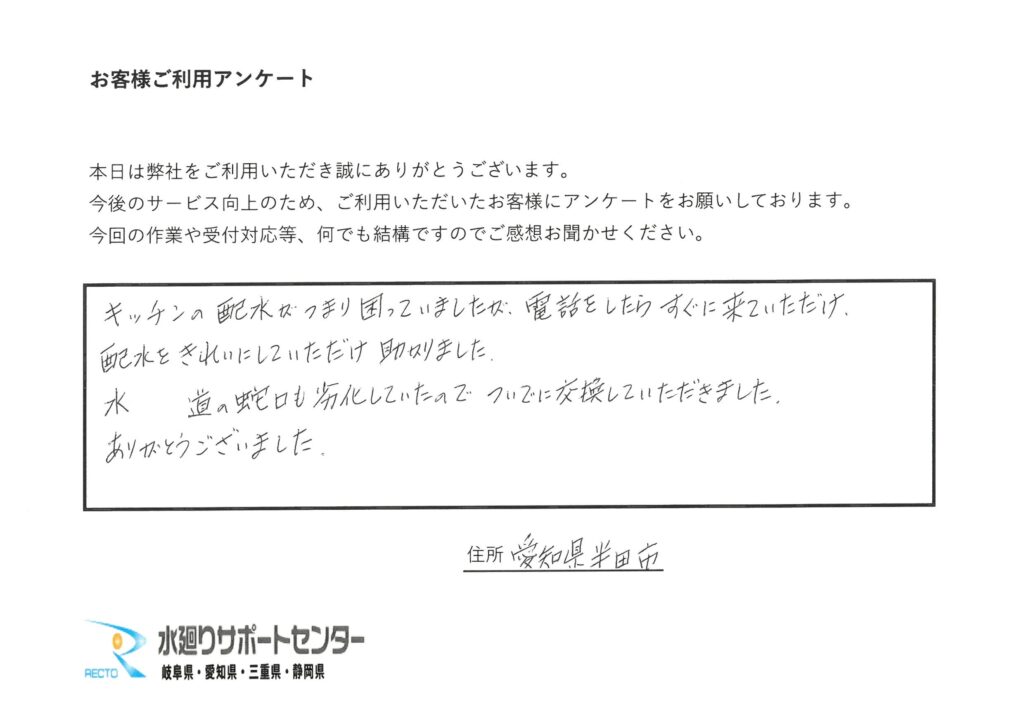 お客様ご利用アンケート
本日は弊社をご利用いただき誠にありがとうございます。
今後のサービス向上のため、ご利用いただいたお客様にアンケートをお願いしております。
今回の作業や受付対応等、何でも結構ですのでご感想お聞かせください。
キッチンの配水がつまり困っていましたが、電話をしたらすぐに来ていただけ、
配水をきれいにしていただけ助かりました。
水　道の蛇口も劣化していたのでついでに交換していただきました。
ありがとうございました。
住所 愛知県半田市
RECTO 水廻りサポートセンター
岐阜県・愛知県・三重県・静岡県